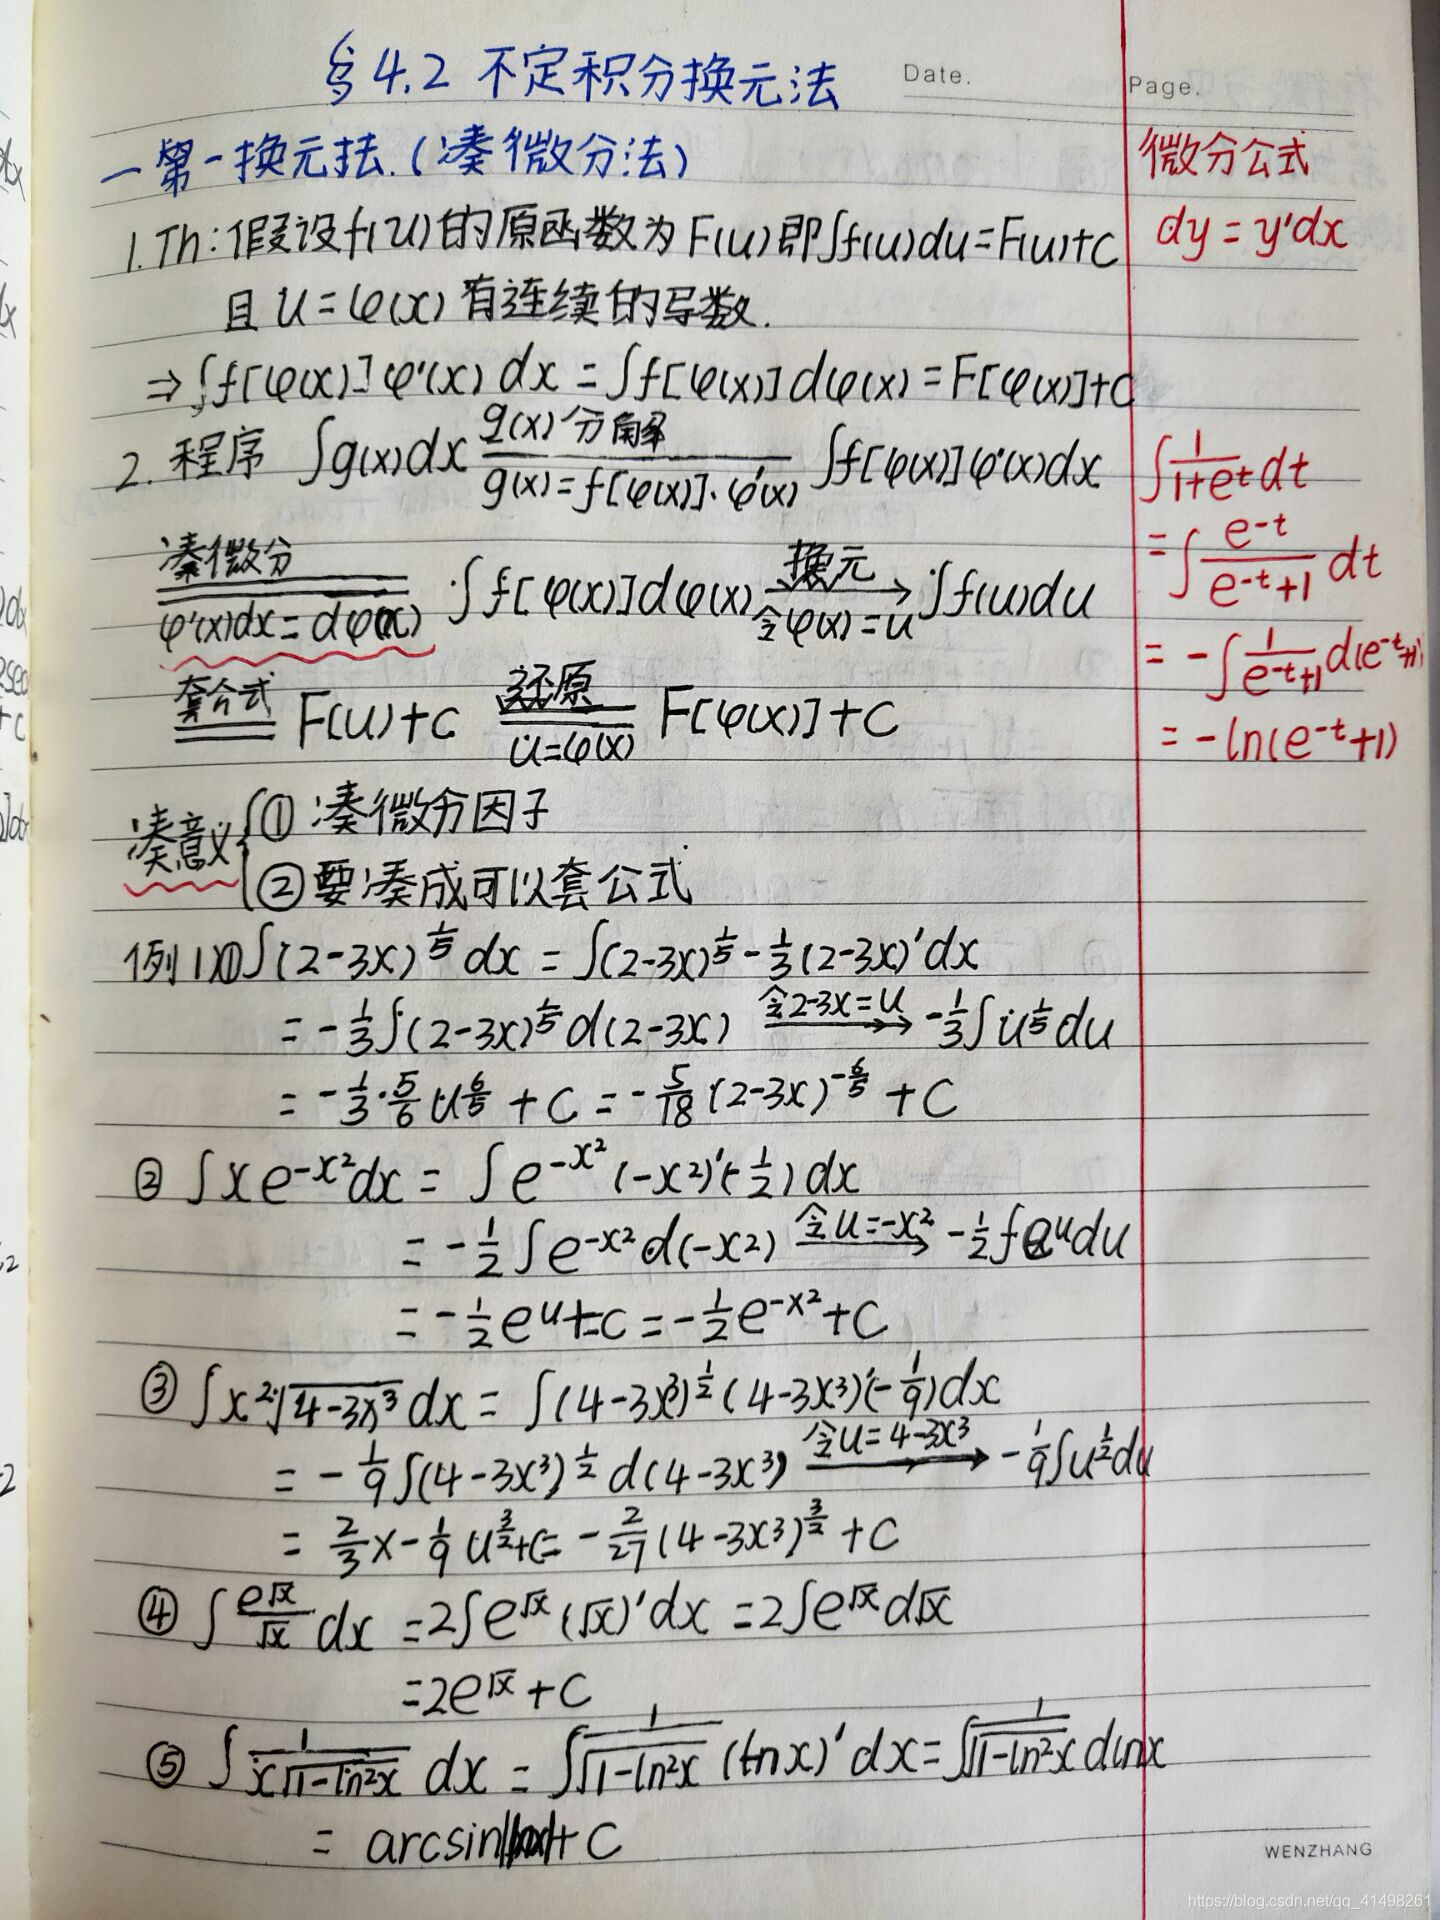 §4.2 不定积分换元法
Date.
Page.
一 第一换元法.(凑微分法)
微分公式
1. Th: 假设f(u)的原函数为F(u)即∫f(u)du=F(u)+C
dy = y'dx
且 u=φ(x) 有连续的导数.
⇒ ∫f[φ(x)]φ'(x) dx = ∫f[φ(x)]dφ(x) = F[φ(x)]+C
2. 程序 ∫g(x)dx g(x)分解 g(x)=f[φ(x)]·φ'(x) ∫f[φ(x)]φ'(x)dx
凑微分 φ'(x)dx=dφ(x) ∫f[φ(x)]dφ(x) 换元 令φ(x)=u → ∫f(u)du
套公式 F(u)+C 还原 u=φ(x) F[φ(x)]+C
∫ 1/(1+e^t) dt
= ∫ e^-t/(e^-t+1) dt
= -∫ 1/(e^-t+1) d(e^-t+1)
= -ln(e^-t+1)
凑意义 ① 凑微分因子
② 要凑成可以套公式
例1 ① ∫(2-3x)^(1/5) dx = ∫(2-3x)^(1/5) -1/3 (2-3x)'dx
= -1/3 ∫(2-3x)^(1/5) d(2-3x) 令2-3x=u → -1/3 ∫u^(1/5) du
= -1/3 · 5/6 u^(6/5) + C = -5/18 (2-3x)^(-6/5) + C
② ∫x e^(-x²) dx = ∫e^(-x²) (-x²)'(-1/2) dx
= -1/2 ∫e^(-x²) d(-x²) 令u=-x² → -1/2 ∫e^u du
= -1/2 e^u + C = -1/2 e^(-x²) + C
③ ∫x² √(4-3x³) dx = ∫(4-3x³)^(1/2) (4-3x³)'(-1/9) dx
= -1/9 ∫(4-3x³)^(1/2) d(4-3x³) 令u=4-3x³ → -1/9 ∫u^(1/2) du
= 2/3 x -1/9 u^(3/2) +C = -2/27 (4-3x³)^(3/2) + C
④ ∫ e^√x/√x dx = 2∫e^√x (√x)'dx = 2∫e^√x d√x
= 2e^√x + C
⑤ ∫ 1/(x√(1-ln²x)) dx = ∫ 1/√(1-ln²x) (lnx)' dx = ∫ 1/√(1-ln²x) dlnx
= arcsin|lnx| + C
WENZHANG
https://blog.csdn.net/qq_41498261